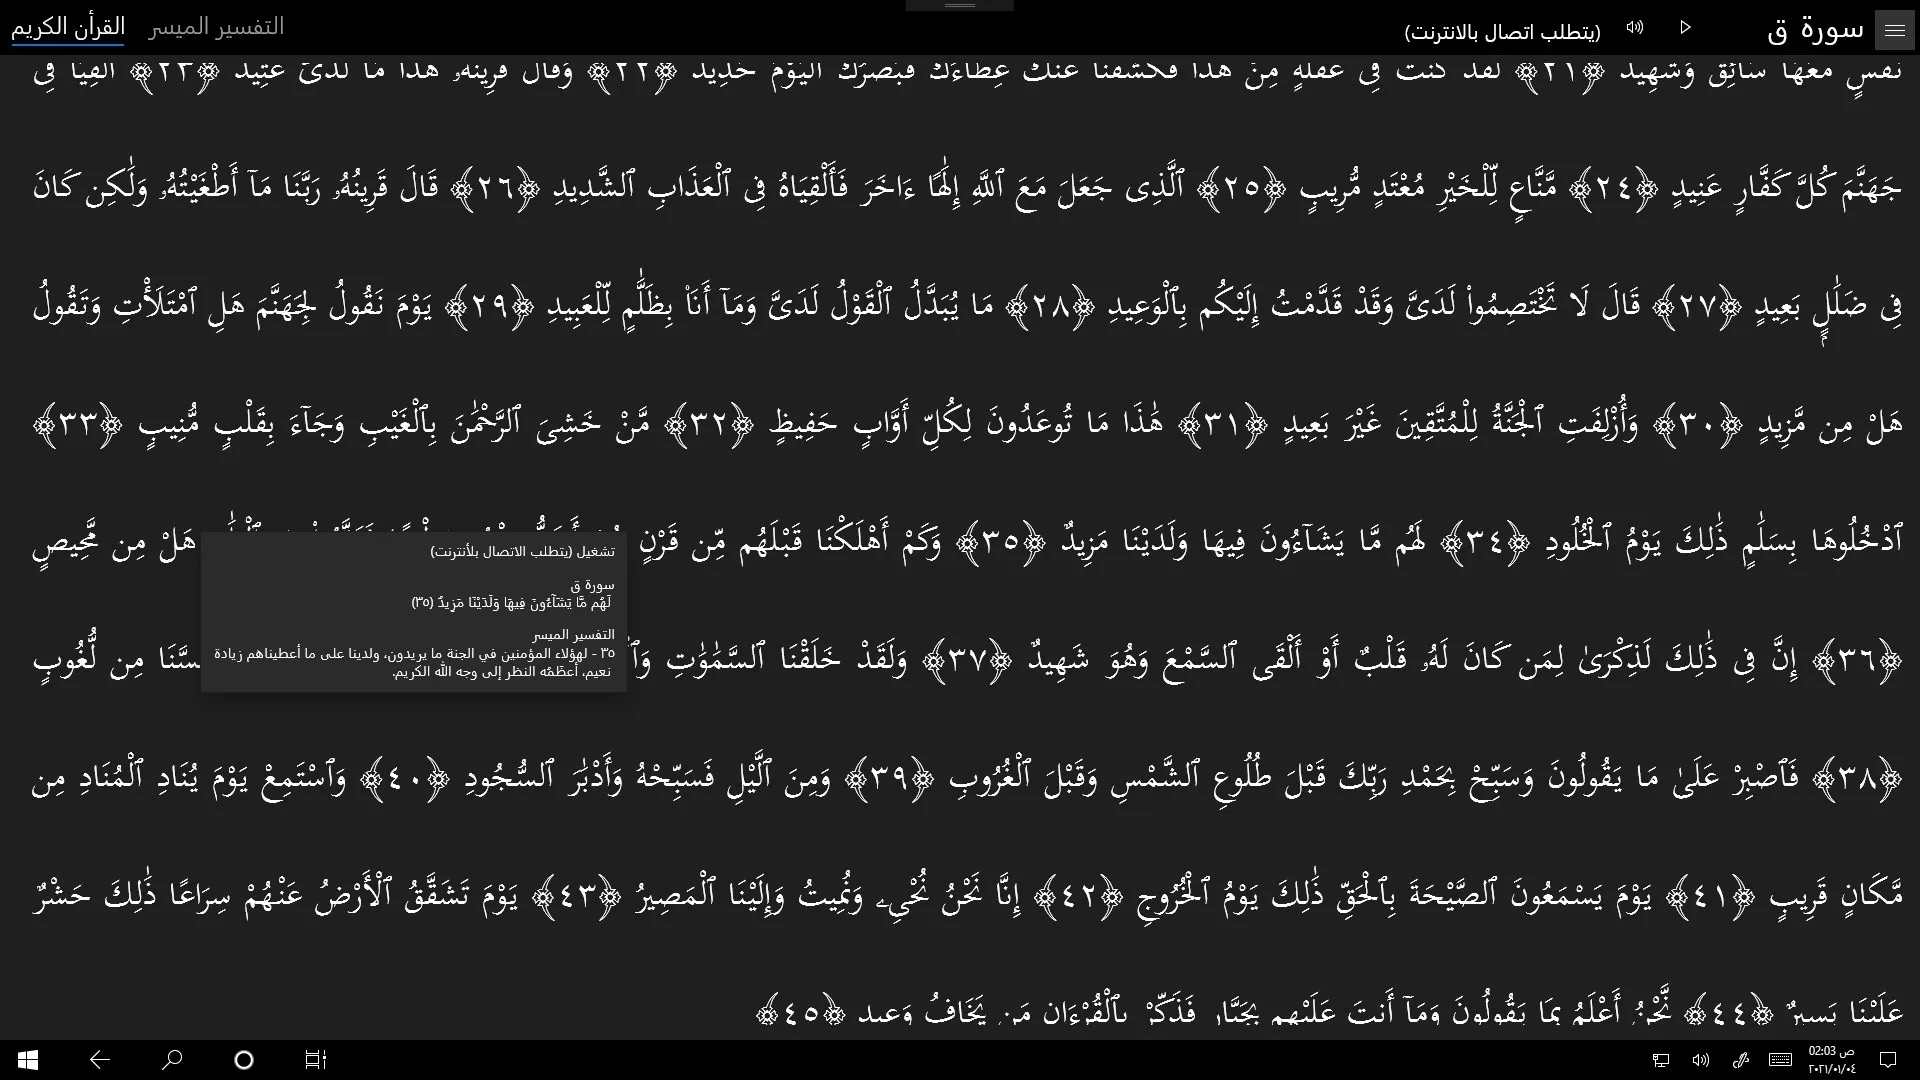 سورة ق
(يتطلب اتصال بالانترنت)
التفسير الميسر
القرأن الكريم
نَفْسٍ مَّعَهَا سَآئِقٌ وَشَهِيدٌ ﴿٢١﴾ لَّقَدْ كُنتَ فِى غَفْلَةٍ مِّنْ هَٰذَا فَكَشَفْنَا عَنكَ غِطَآءَكَ فَبَصَرُكَ ٱلْيَوْمَ حَدِيدٌ ﴿٢٢﴾ وَقَالَ قَرِينُهُۥ هَٰذَا مَا لَدَىَّ عَتِيدٌ ﴿٢٣﴾ أَلْقِيَا فِى
جَهَنَّمَ كُلَّ كَفَّارٍ عَنِيدٍ ﴿٢٤﴾ مَّنَّاعٍ لِّلْخَيْرِ مُعْتَدٍ مُّرِيبٍ ﴿٢٥﴾ ٱلَّذِى جَعَلَ مَعَ ٱللَّهِ إِلَٰهًا ءَاخَرَ فَأَلْقِيَاهُ فِى ٱلْعَذَابِ ٱلشَّدِيدِ ﴿٢٦﴾ قَالَ قَرِينُهُۥ رَبَّنَا مَآ أَطْغَيْتُهُۥ وَلَٰكِن كَانَ
فِى ضَلَٰلٍۭ بَعِيدٍ ﴿٢٧﴾ قَالَ لَا تَخْتَصِمُوا۟ لَدَىَّ وَقَدْ قَدَّمْتُ إِلَيْكُم بِٱلْوَعِيدِ ﴿٢٨﴾ مَا يُبَدَّلُ ٱلْقَوْلُ لَدَىَّ وَمَآ أَنَا۠ بِظَلَّٰمٍ لِّلْعَبِيدِ ﴿٢٩﴾ يَوْمَ نَقُولُ لِجَهَنَّمَ هَلِ ٱمْتَلَأْتِ وَتَقُولُ
هَلْ مِن مَّزِيدٍ ﴿٣٠﴾ وَأُزْلِفَتِ ٱلْجَنَّةُ لِلْمُتَّقِينَ غَيْرَ بَعِيدٍ ﴿٣١﴾ هَٰذَا مَا تُوعَدُونَ لِكُلِّ أَوَّابٍ حَفِيظٍ ﴿٣٢﴾ مَّنْ خَشِىَ ٱلرَّحْمَٰنَ بِٱلْغَيْبِ وَجَآءَ بِقَلْبٍ مُّنِيبٍ ﴿٣٣﴾
ٱدْخُلُوهَا بِسَلَٰمٍ ذَٰلِكَ يَوْمُ ٱلْخُلُودِ ﴿٣٤﴾ لَهُم مَّا يَشَآءُونَ فِيهَا وَلَدَيْنَا مَزِيدٌ ﴿٣٥﴾ وَكَمْ أَهْلَكْنَا قَبْلَهُم مِّن قَرْنٍ هَلْ مِن مَّحِيصٍ
تشغيل (يتطلب الاتصال بلأنترنت)
سورة ق
لَهُم مَّا يَشَآءُونَ فِيهَا وَلَدَيْنَا مَزِيدٌ (٣٥)
التفسير الميسر
٣٥ - لهؤلاء المؤمنين في الجنة ما يريدون، ولدينا على ما أعطيناهم زيادة
نعيم، أعظَمُه النظر إلى وجه الله الكريم.
﴿٣٦﴾ إِنَّ فِى ذَٰلِكَ لَذِكْرَىٰ لِمَن كَانَ لَهُۥ قَلْبٌ أَوْ أَلْقَى ٱلسَّمْعَ وَهُوَ شَهِيدٌ ﴿٣٧﴾ وَلَقَدْ خَلَقْنَا ٱلسَّمَٰوَٰتِ مِن لُّغُوبٍ
﴿٣٨﴾ فَٱصْبِرْ عَلَىٰ مَا يَقُولُونَ وَسَبِّحْ بِحَمْدِ رَبِّكَ قَبْلَ طُلُوعِ ٱلشَّمْسِ وَقَبْلَ ٱلْغُرُوبِ ﴿٣٩﴾ وَمِنَ ٱلَّيْلِ فَسَبِّحْهُ وَأَدْبَٰرَ ٱلسُّجُودِ ﴿٤٠﴾ وَٱسْتَمِعْ يَوْمَ يُنَادِ ٱلْمُنَادِ مِن
مَّكَانٍ قَرِيبٍ ﴿٤١﴾ يَوْمَ يَسْمَعُونَ ٱلصَّيْحَةَ بِٱلْحَقِّ ذَٰلِكَ يَوْمُ ٱلْخُرُوجِ ﴿٤٢﴾ إِنَّا نَحْنُ نُحْىِۦ وَنُمِيتُ وَإِلَيْنَا ٱلْمَصِيرُ ﴿٤٣﴾ يَوْمَ تَشَقَّقُ ٱلْأَرْضُ عَنْهُمْ سِرَاعًا ذَٰلِكَ حَشْرٌ
عَلَيْنَا يَسِيرٌ ﴿٤٤﴾ نَّحْنُ أَعْلَمُ بِمَا يَقُولُونَ وَمَآ أَنتَ عَلَيْهِم بِجَبَّارٍ فَذَكِّرْ بِٱلْقُرْءَانِ مَن يَخَافُ وَعِيدِ ﴿٤٥﴾
02:03 ص
٢٠٢١/٠١/٠٤